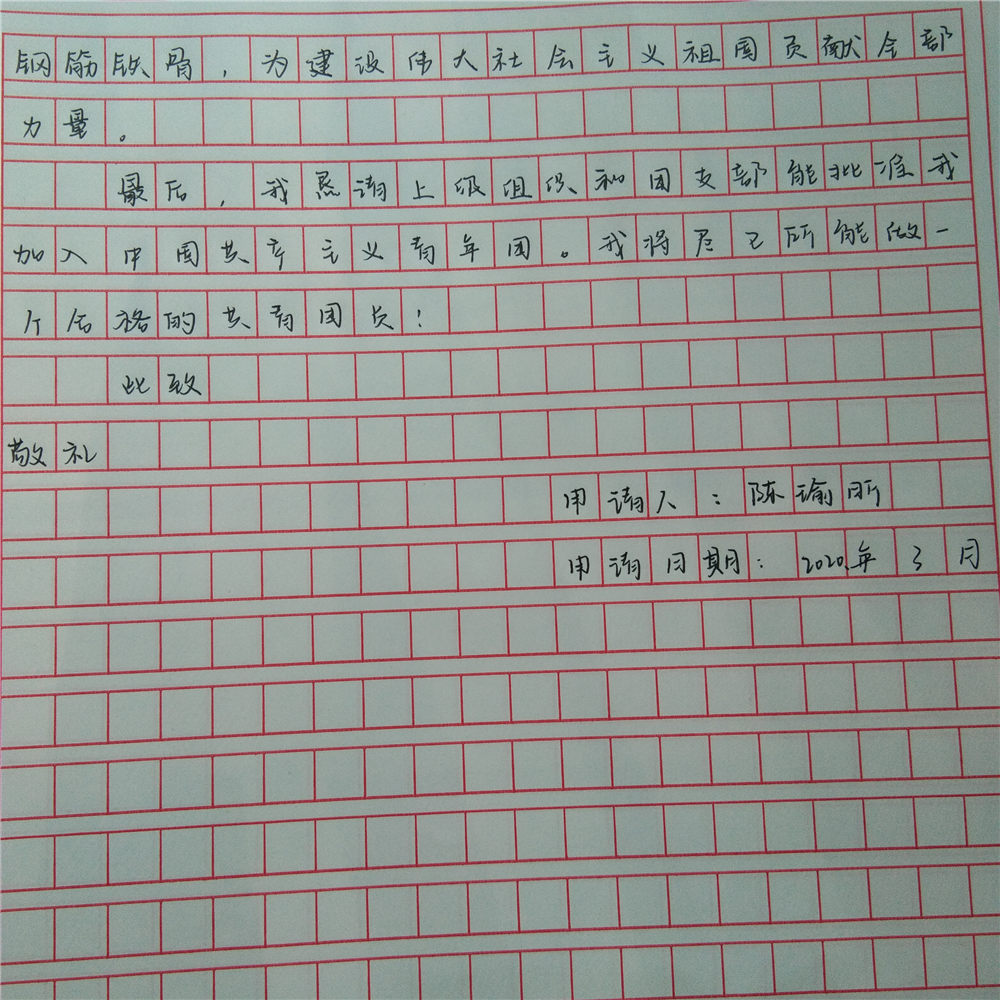 钢筋铁骨，为建设伟大社会主义祖国贡献全部
力量。
最后，我恳请上级组织和团支部能批准我
加入中国共产主义青年团。我将尽己所能做一
个合格的共青团员！
此致
敬礼
申请人：陈瑜昕
申请日期：2020.年3月